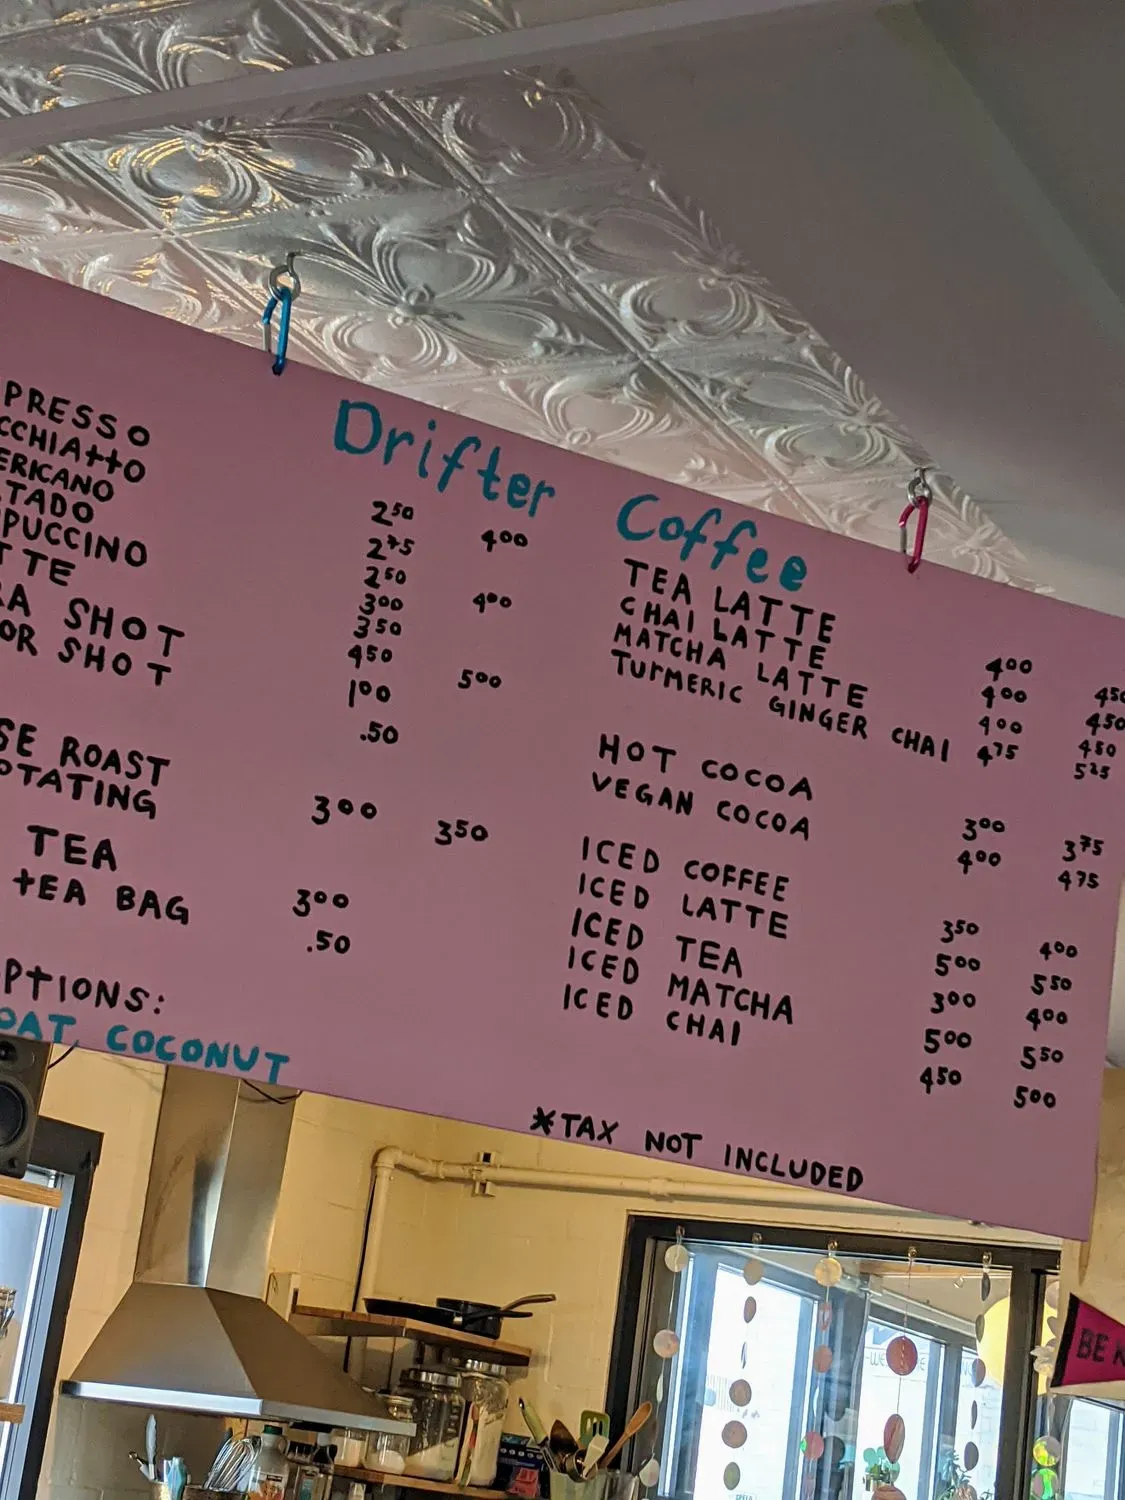 Drifter Coffee
PRESSO 2.50
CCHIATTO 2.75 4.00
ERICANO 2.50
TADO 3.00 4.00
PUCCINO 3.50
TTE 4.50
RA SHOT 1.00 5.00
OR SHOT .50
SE ROAST
OTATING 3.00 3.50
TEA 3.00
TEA BAG .50
OPTIONS:
OAT, COCONUT
TEA LATTE 4.00 4.50
CHAI LATTE 4.00 4.50
MATCHA LATTE 4.00 4.50
TURMERIC GINGER CHAI 4.75 5.25
HOT COCOA 3.00 3.75
VEGAN COCOA 4.00 4.75
ICED COFFEE 3.50 4.00
ICED LATTE 5.00 5.50
ICED TEA 3.00 4.00
ICED MATCHA 5.00 5.50
ICED CHAI 4.50 5.00
*TAX NOT INCLUDED
BE